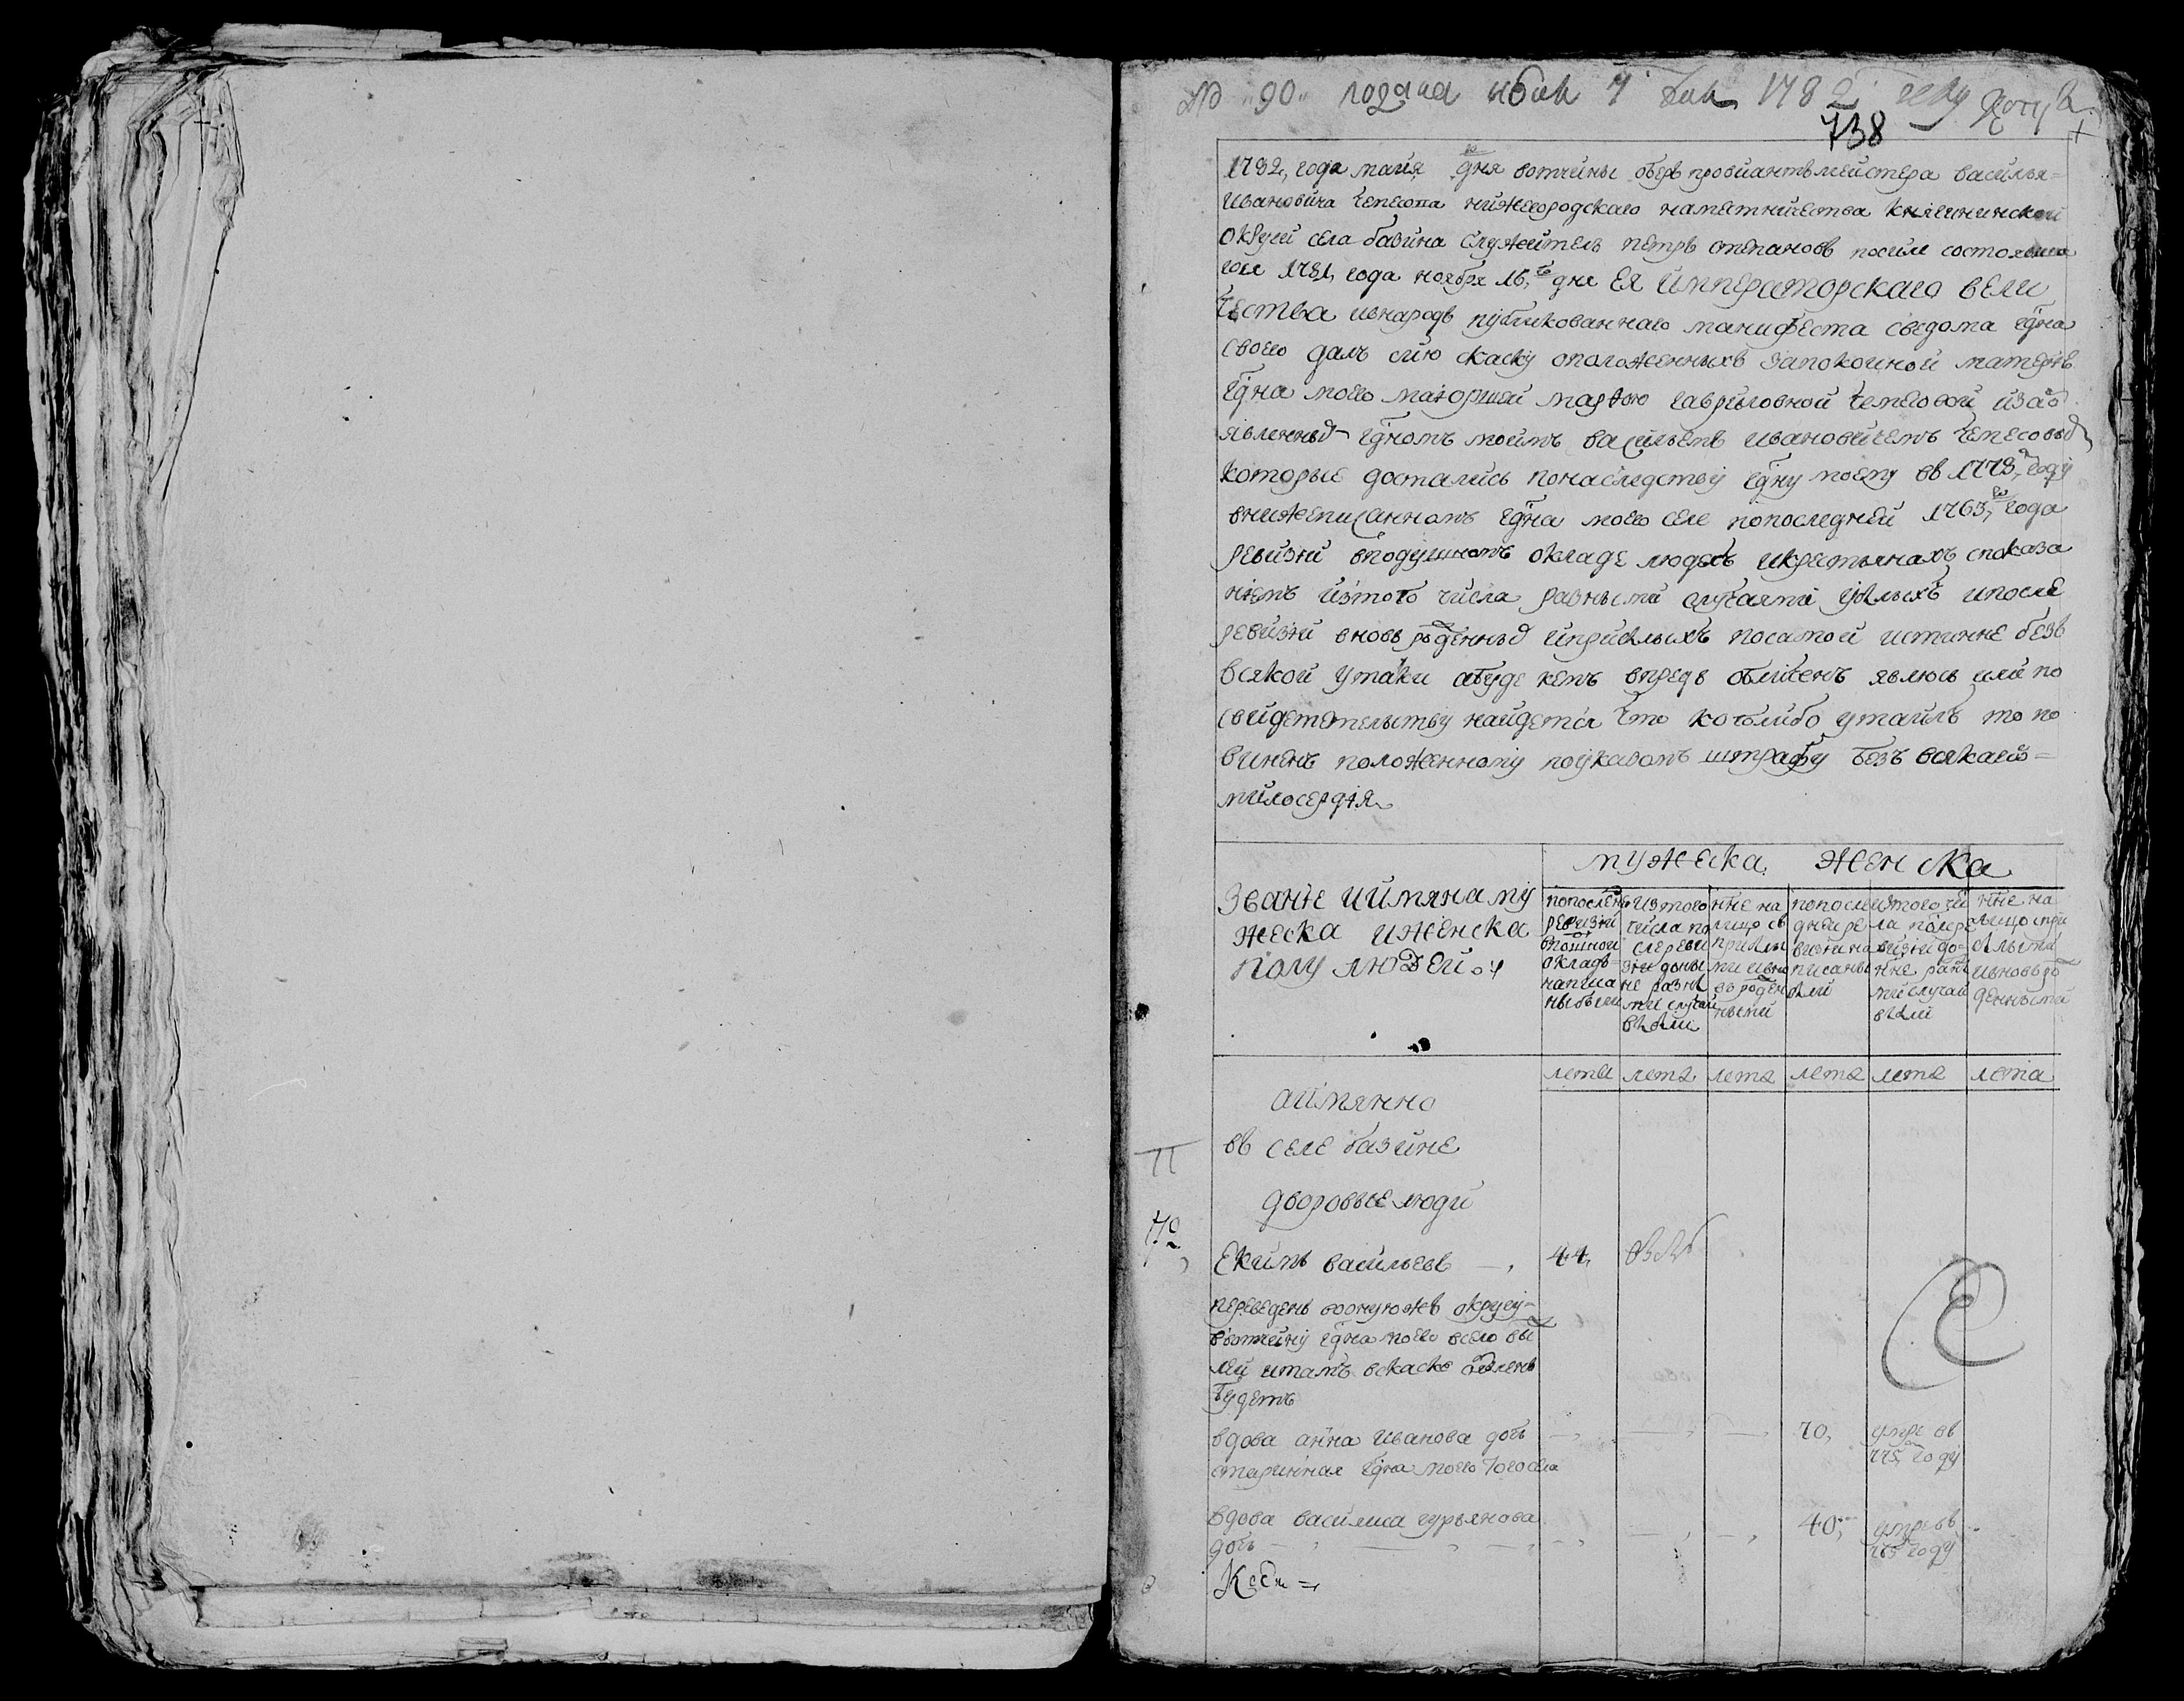 № 90 подана июня 7 дня 1782 году
738
1782, года майя го дня вотчины оберъ провиантъмейстера василья=
ивановича чемесова нижегородскаго наместничества княгининской
округи села базина служитель петръ степановъ посиле состоявша
гося 1781, года ноября 16, го дня ЕЯ ИМПЕРАТОРСКАГО ВЕЛИ
ЧЕСТВА ивнародъ публикованнаго манифеста сведома гдна
своего далъ сию скаску оположенныхъ запокоиной матерью
гдна моего маиоршей марфою гавриловной чемесовой
явленных гдномъ моимъ васильемъ ивановичемъ чемесовым
которые достались понаследству гдну моему въ 1778, м году
внижеписанномъ гдна моего селе попоследней 1763, го года
ревизии вподушномъ окладе людехъ икрестьянахъ споказа
ниемъ изтого числа разными случаями убылыхъ ипосле
ревизии вновь рожденных иприбылыхъ посамой истинне безъ
всякой утайки абуде кемъ впредь обличенъ явлюсь или по
свидетельству найдется что коголибо утаилъ то по
виненъ положенному поуказомъ штрафу безъ всякаго=
милосердия
мужеска женска
звание иимяна му
жеска иженска
полу людей
попоследней ревизии вподушном окладе написаны были
изтого числа после ревизии доныне разными случаи выбыли
ныне налицо съ прибылыми ивновь рожденными
попоследней ревизии написаны были
изтого числа после ревизии доныне разными случаи выбыли
ныне налицо сприбылыми ивновь рожденными
лета лета лета лета лета лета
аимянно
въ селе базине
дворовые люди
Екимъ васильевъ 44,
переведенъ вооную жъ округу
вотчину гдна моего всело
итамъ вскаске объявленъ
будетъ
вдова анна иванова дочь 70, умре въ
старинная гдна моего тогосела 775, м году
вдова василиса гурьянова 40, умре въ
дочь 765 году